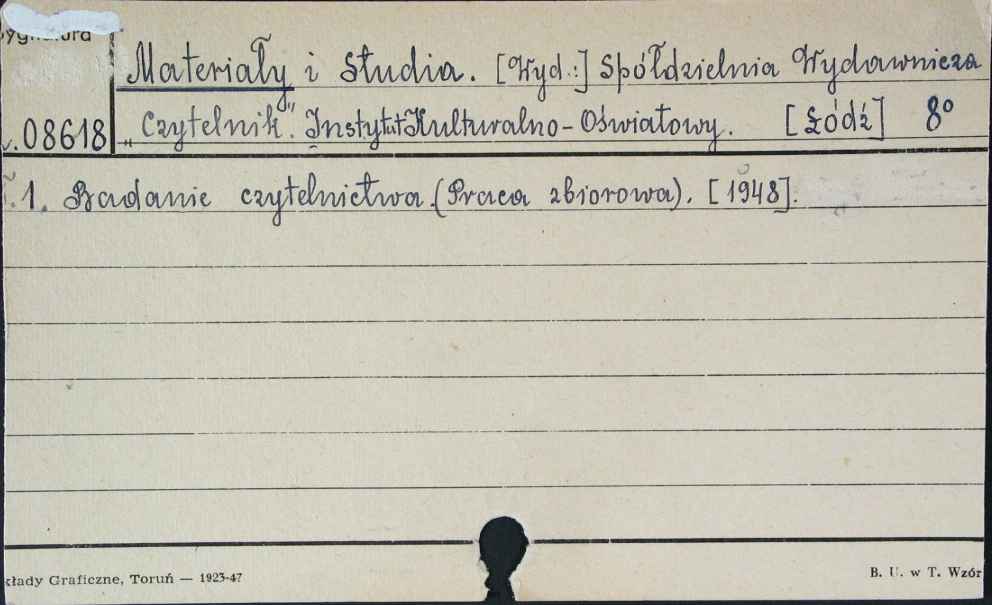 Sygnatura
Materiały i Studia. [Wyd.:] Spółdzielnia Wydawnicza
08618 „Czytelnik". Instytut Kulturalno-Oświatowy. [Łódź] 8°
1. Badanie czytelnictwa. (Praca zbiorowa). [1948].
kłady Graficzne, Toruń — 1923-47
B. U. w T. Wzór